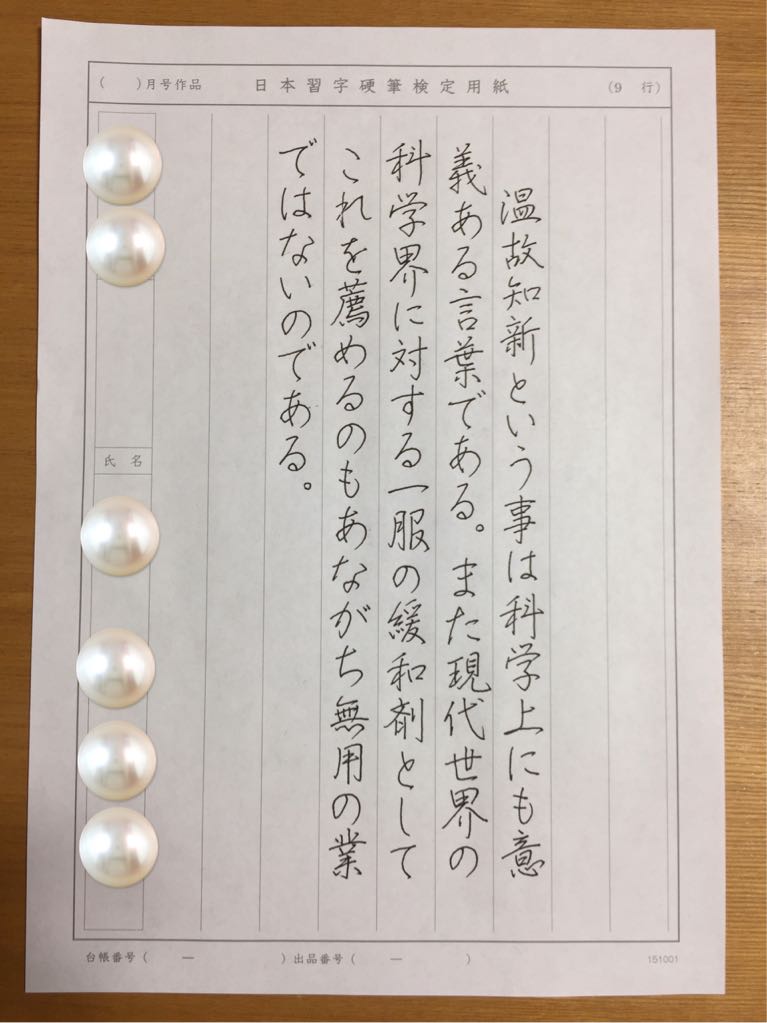 （　　）月号作品　日本習字硬筆検定用紙　（9　行）
温故知新という事は科学上にも意
義ある言葉である。また現代世界の
科学界に対する一服の緩和剤として
これを薦めるのもあながち無用の業
ではないのである。
氏　名
台帳番号（　　―　　）出品番号（　　―　　）
151001